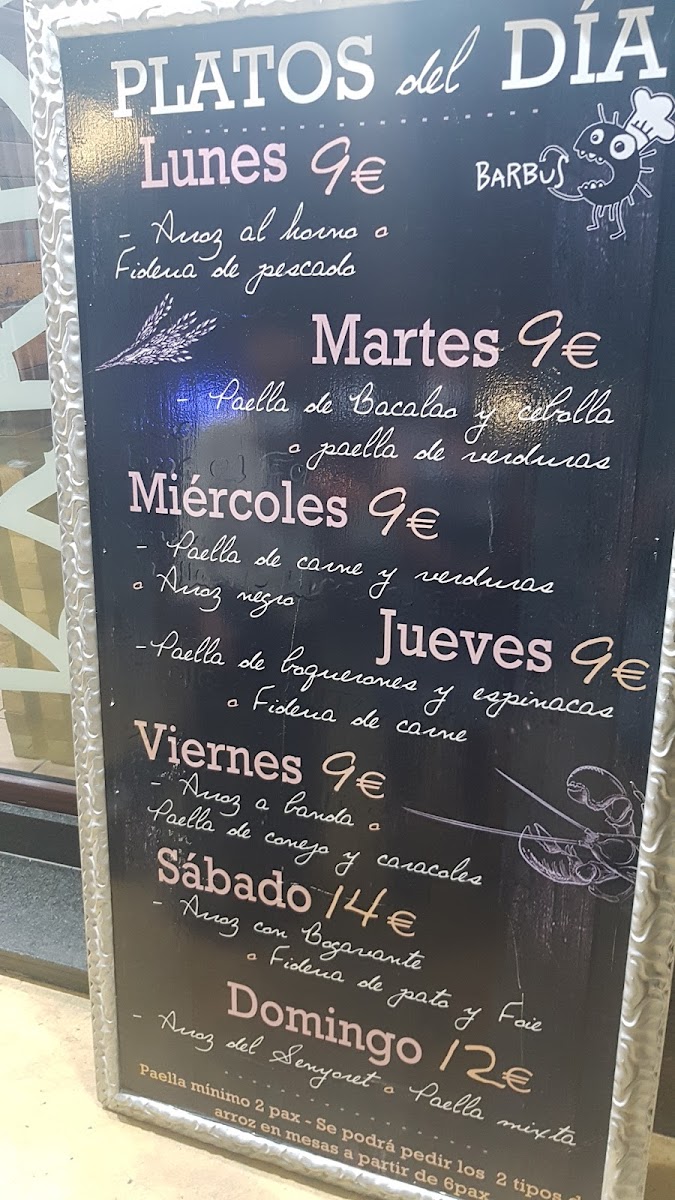 PLATOS del DÍA
Lunes 9€
BARBUS
- Arroz al horno o
Fideua de pescado
Martes 9€
- Paella de Bacalao y cebolla
o paella de verduras
Miércoles 9€
- Paella de carne y verduras
o Arroz negro
Jueves 9€
- Paella de boquerones y espinacas
o Fideua de carne
Viernes 9€
- Arroz a banda o
Paella de conejo y caracoles
Sábado 14€
- Arroz con Bogavante
o Fideua de pato y Foie
Domingo 12€
- Arroz del Senyoret o Paella mixta
Paella mínimo 2 pax - Se podrá pedir los 2 tipos
arroz en mesas a partir de 6pax